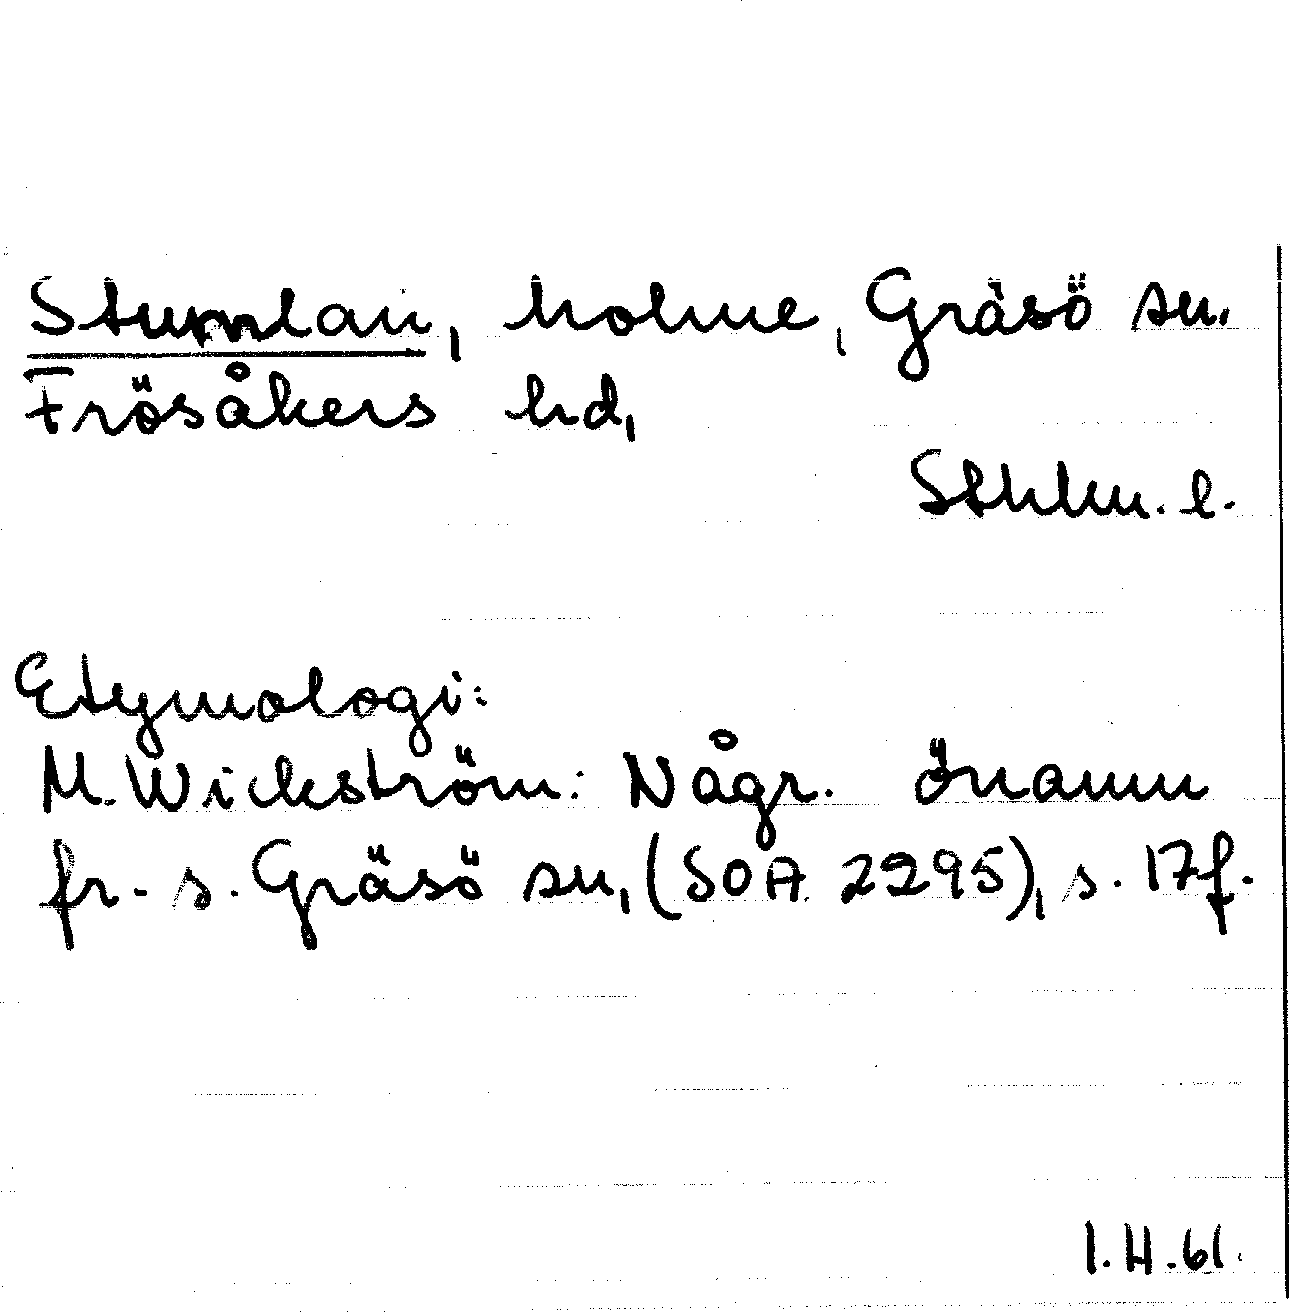 Stumlan, holme, Gräsö sn.
Frösåkers hd,
Sthlm. l.
Etymologi:
M. Wickström: Någr. önamn
fr. s. Gräsö sn, (SOA 2295), s. 17f.
I.H.61.